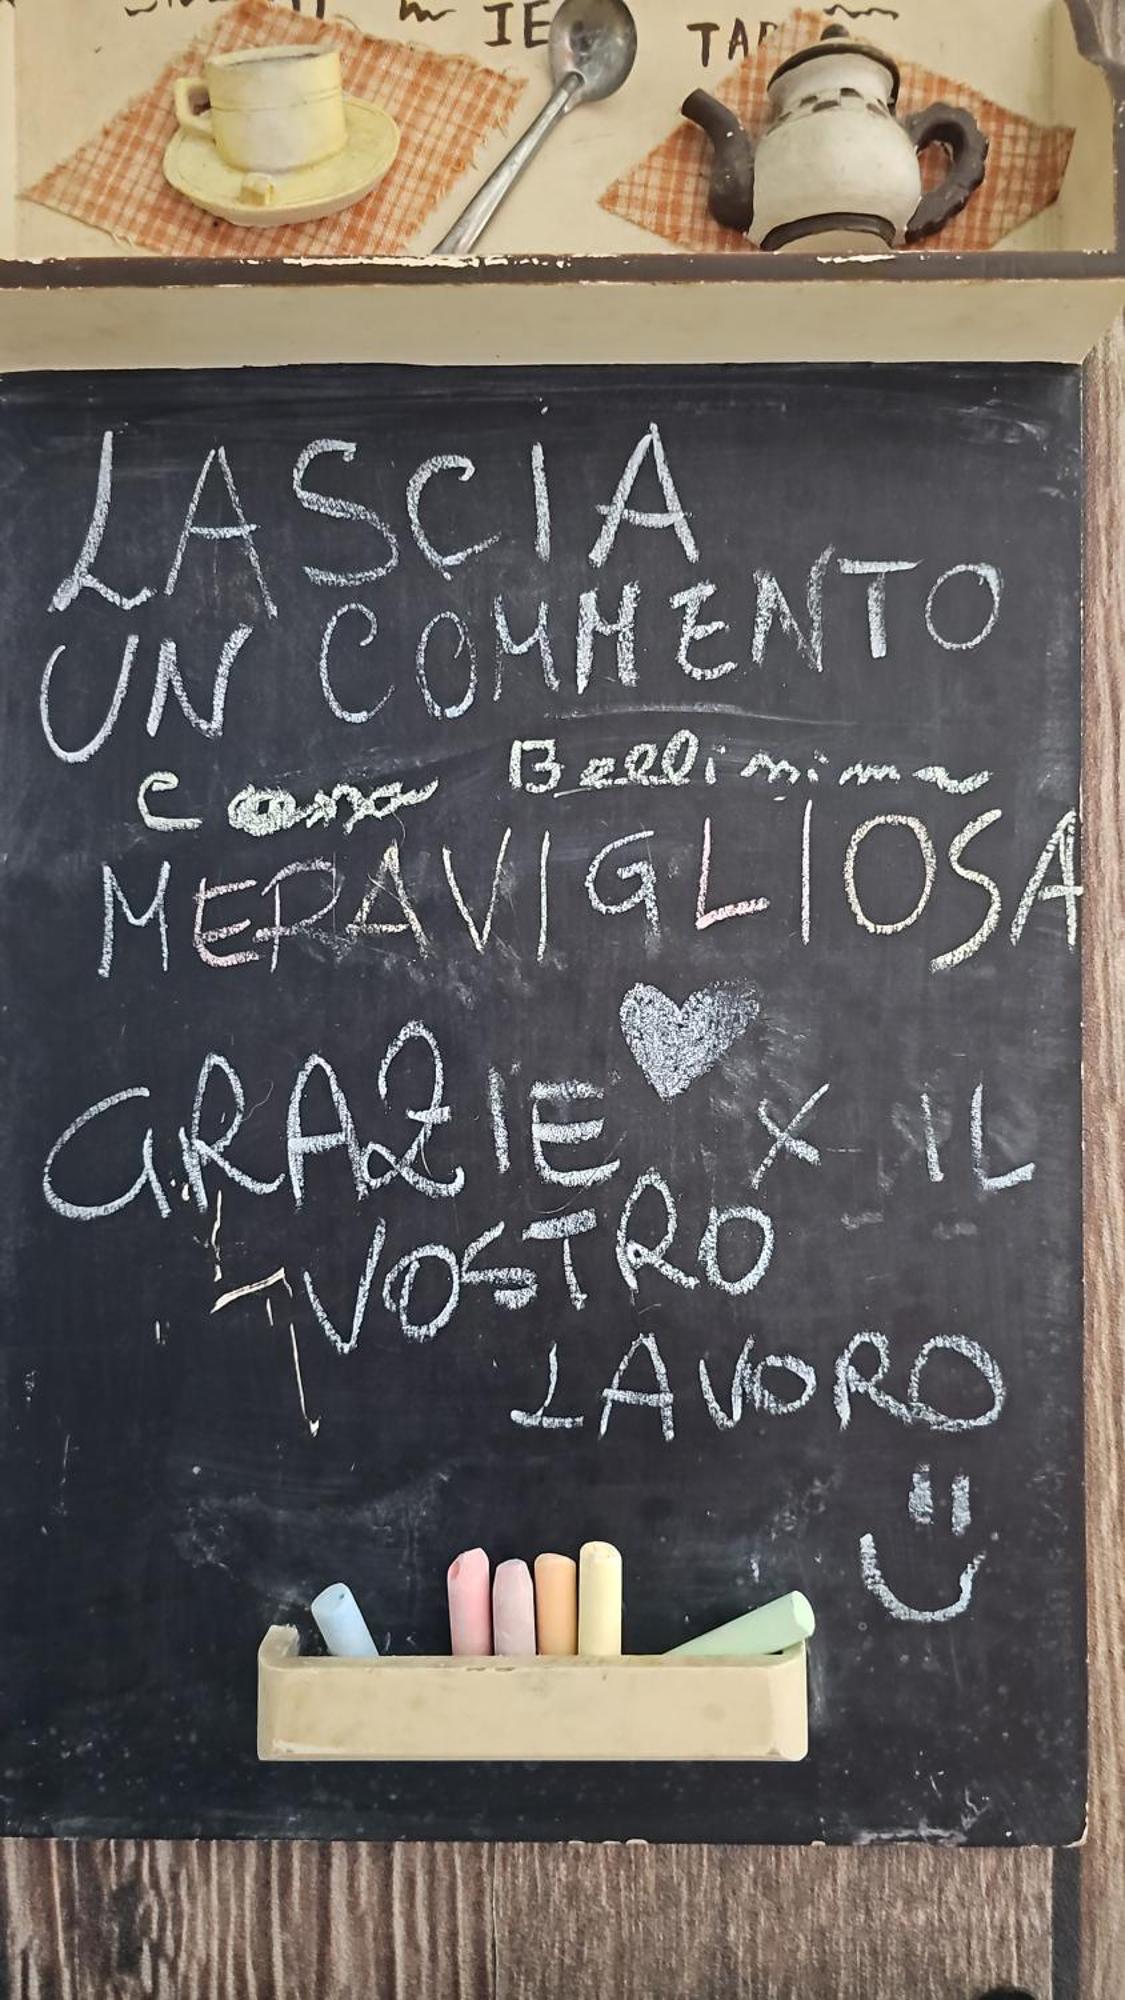 IE
TAP
LASCIA
UN COMMENTO
Casa Bellissima
MERAVIGLIOSA
GRAZIE X IL
VOSTRO
LAVORO